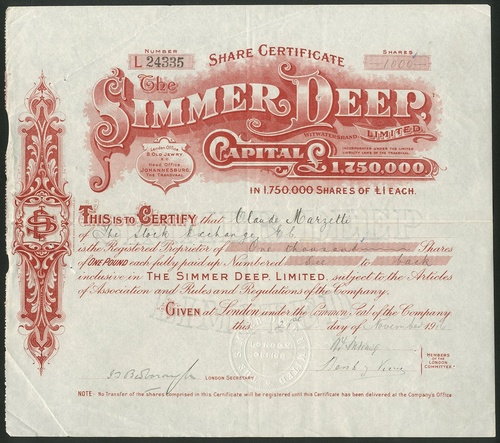 NUMBER
L 24335
SHARE CERTIFICATE
SHARES
1000
The
SIMMER DEEP,
WITWATERSRAND
LIMITED.
London Office
8, OLD JEWRY,
E.C.
HEAD OFFICE
JOHANNESBURG,
THE TRANSVAAL
INCORPORATED UNDER THE LIMITED
LIABILITY LAWS OF THE TRANSVAAL
CAPITAL £1,750,000,
IN 1,750,000 SHARES OF £1 EACH.
THIS IS TO CERTIFY that Claude Marzetti
of The Stock Exchange, E.C.
is the Registered Proprietor of One thousand Shares
of ONE POUND each fully paid up Numbered See to back
inclusive in THE SIMMER DEEP, LIMITED, subject to the Articles
of Association and Rules and Regulations of the Company.
GIVEN at London under the Common Seal of the Company
this day of November
MEMBERS
OF THE
LONDON
COMMITTEE.
LONDON SECRETARY
NOTE - No Transfer of the shares comprised in this Certificate will be registered until this Certificate has been delivered at the Company's Office